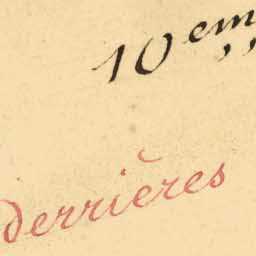 10em
derrières